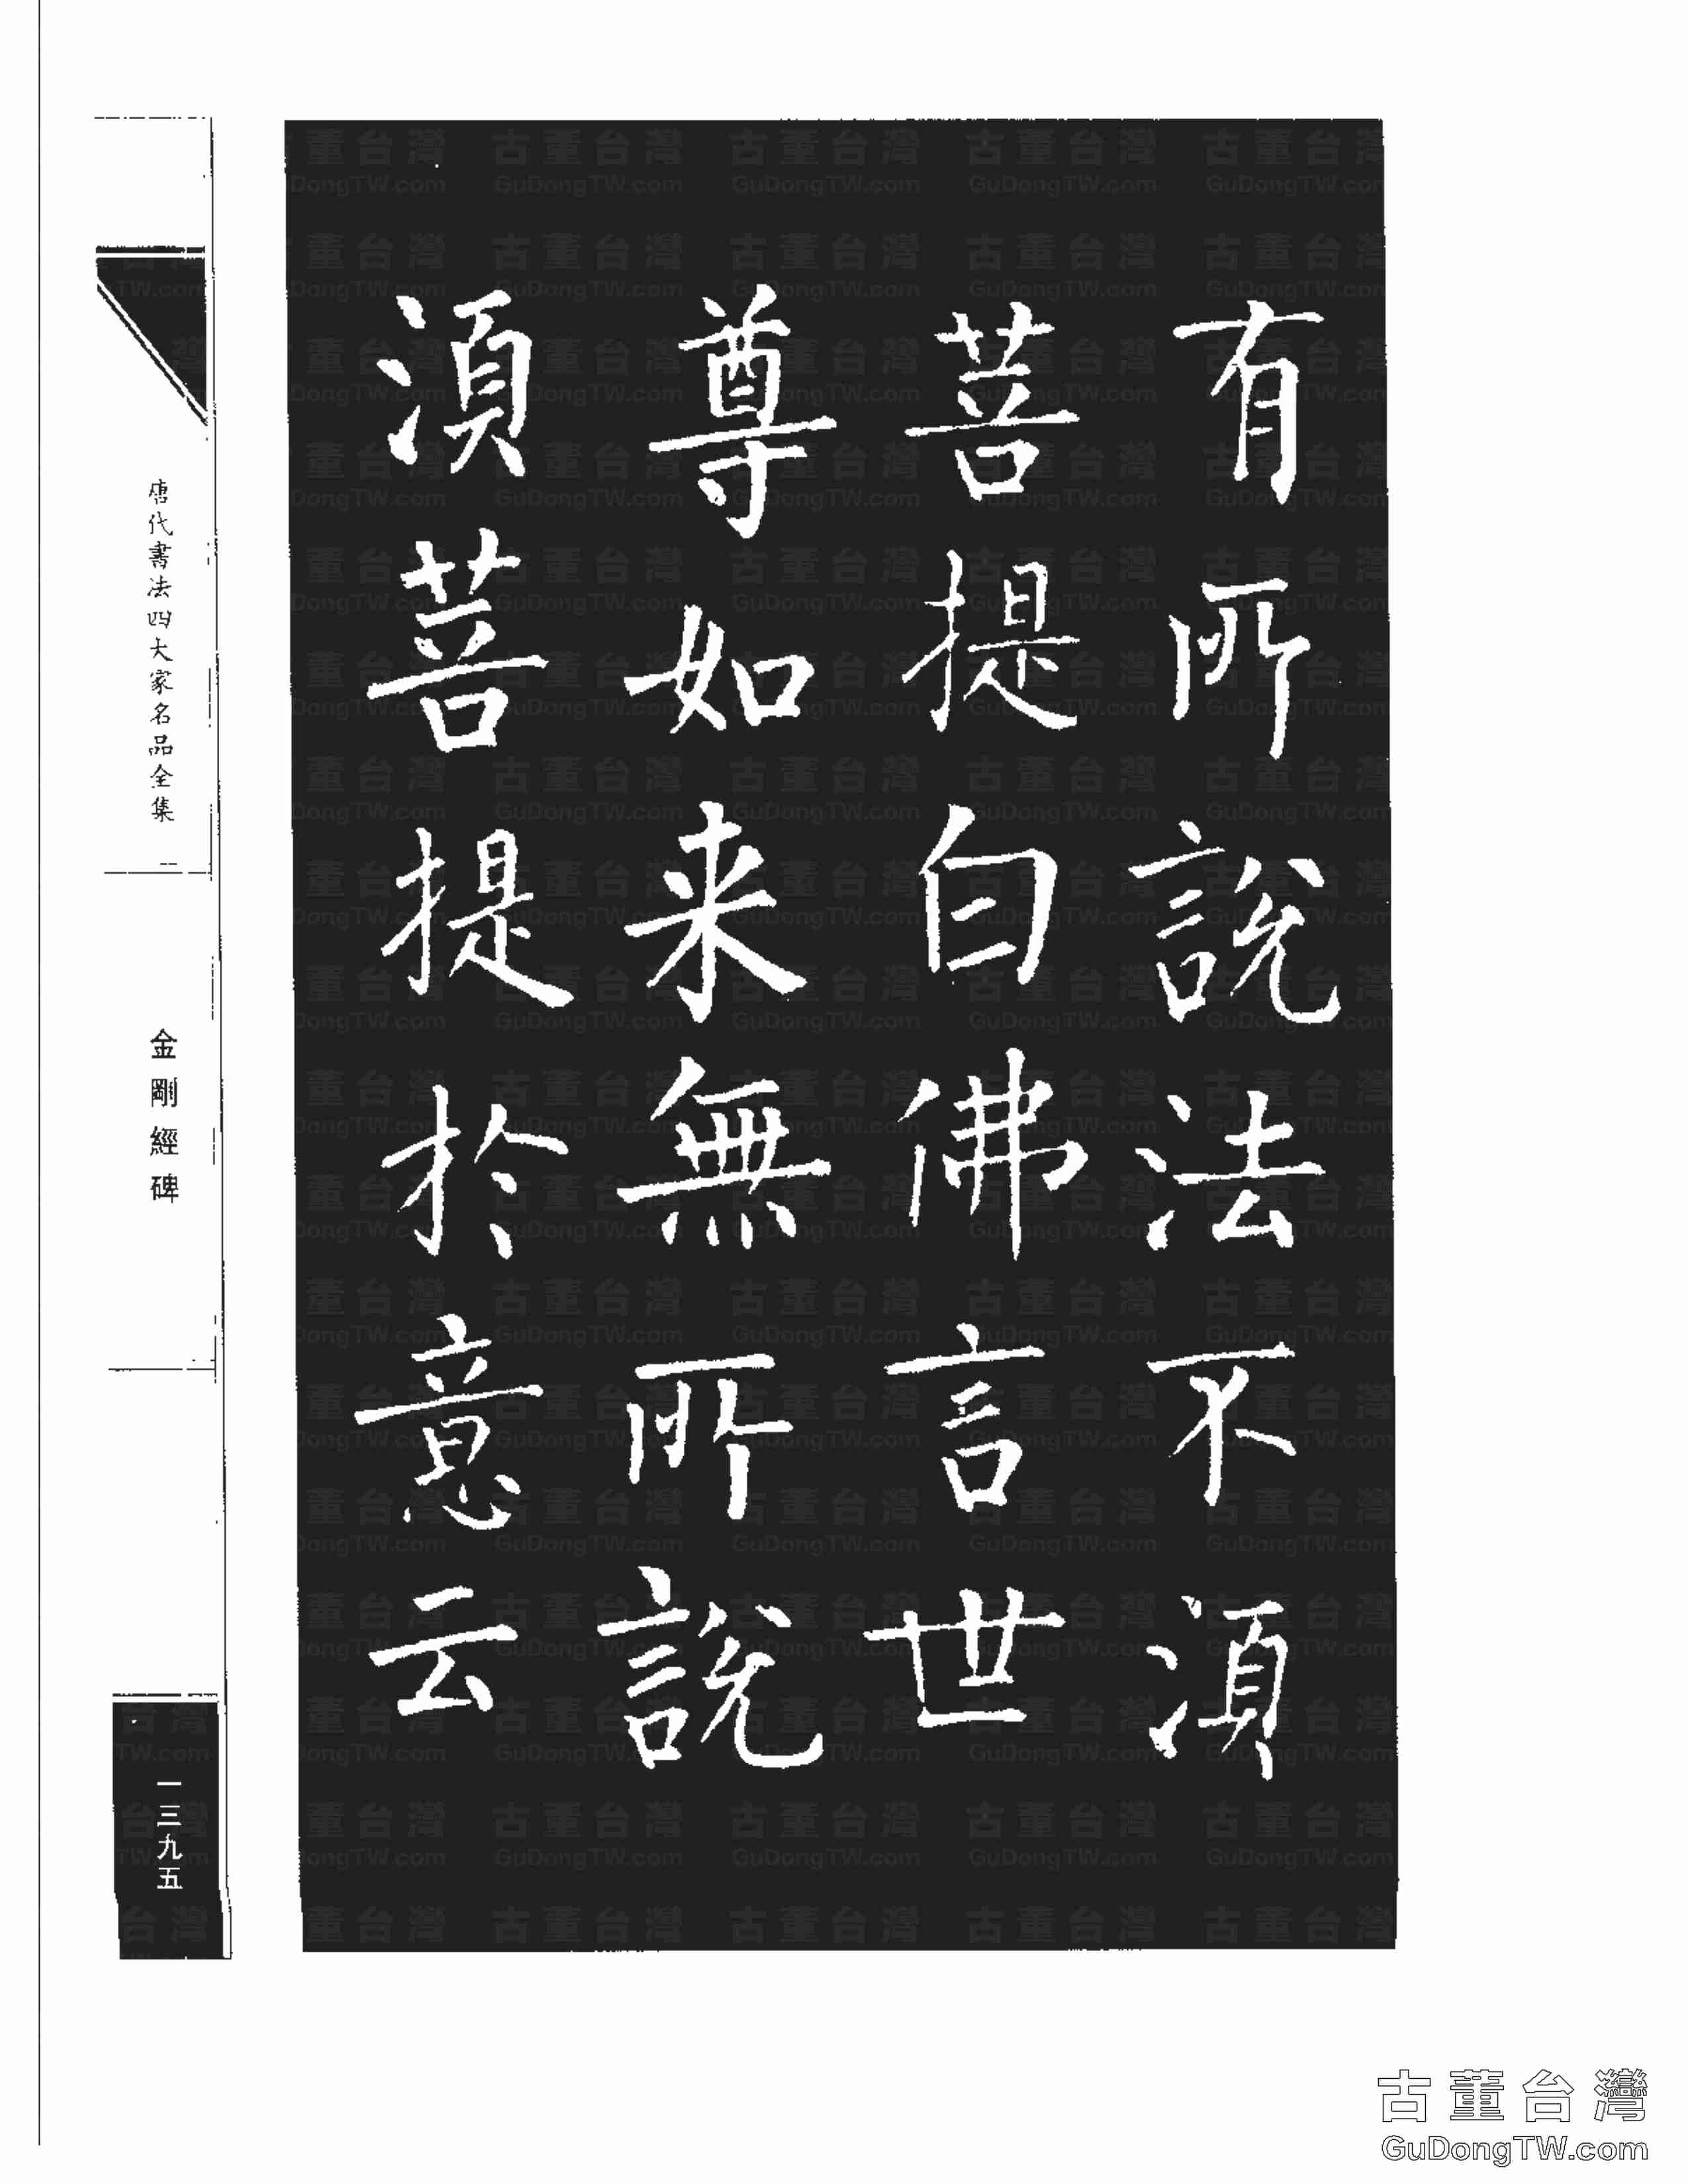 有所說法不湏
菩提白佛言世
尊如来無所說
湏菩提於意云
唐代書法四大家名品全集
金剛經碑
一三九五
古董台灣
GuDongTW.com